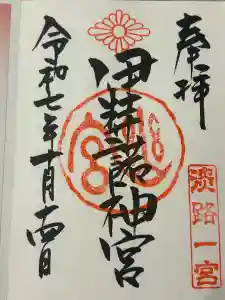 奉拝
伊弉諾神宮
淡路一宮
令和七年十月十四日